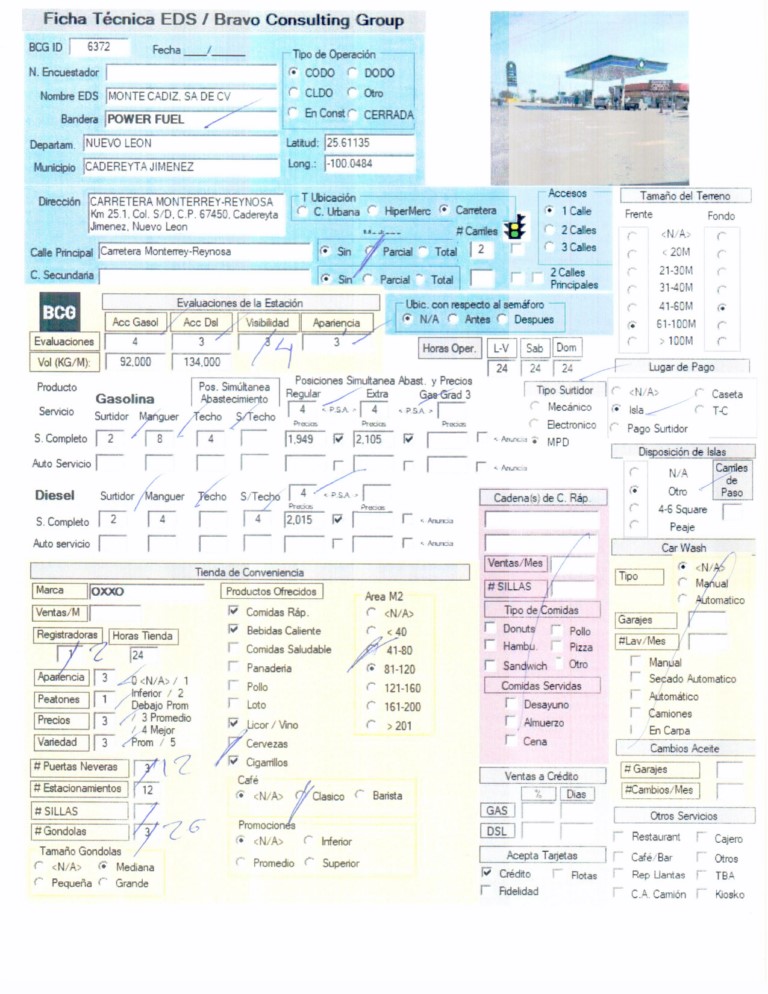 Ficha Técnica EDS / Bravo Consulting Group
BCG ID 6372 Fecha ___/___
Tipo de Operación
N. Encuestador
CODO DODO
Nombre EDS MONTE CADIZ, SA DE CV
CLDO Otro
Bandera POWER FUEL
En Const CERRADA
Departam. NUEVO LEON
Latitud: 25.61135
Municipio CADEREYTA JIMENEZ
Long.: -100.0484
Dirección CARRETERA MONTERREY-REYNOSA
Km 25.1, Col. S/D, C.P. 67450, Cadereyta
Jimenez, Nuevo Leon
T Ubicación
C. Urbana HiperMerc Carretera
# Carriles
Accesos
1 Calle
2 Calles
3 Calles
2 Calles
Principales
Calle Principal Carretera Monterrey-Reynosa
Sin Parcial Total 2
C. Secundaria
Sin Parcial Total
Tamaño del Terreno
Frente Fondo
<N/A>
< 20M
21-30M
31-40M
41-60M
61-100M
> 100M
BCG
Evaluaciones de la Estación
Acc Gasol Acc Dsl Visibilidad Apariencia
Evaluaciones 4 3 3 4 3
Vol (KG/M): 92,000 134,000
Ubic. con respecto al semáforo
N/A Antes Despues
Horas Oper. L-V Sab Dom
24 24 24
Lugar de Pago
<N/A> Caseta
Isla T-C
Pago Surtidor
Producto
Gasolina
Pos. Simúltanea
Abastecimiento
Posiciones Simultanea Abast. y Precios
Regular Extra Gas Grad 3
Servicio Surtidor Manguer Techo S/Techo
4 < P.S.A. > 4 < P.S.A. >
Precios Precios Precios
S. Completo 2 8 4 1,949 2,105 < Anuncia
Auto Servicio < Anuncia
Tipo Surtidor
Mecánico
Electronico
MPD
Disposición de Islas
N/A
Otro
4-6 Square
Peaje
Carriles
de
Paso
Diesel Surtidor Manguer Techo S/Techo 4 < P.S.A. >
Precios Precios
S. Completo 2 4 4 2,015 < Anuncia
Auto servicio < Anuncia
Cadena(s) de C. Ráp.
Ventas/Mes
# SILLAS
Tipo de Comidas
Donuts Pollo
Hambu. Pizza
Sandwich Otro
Comidas Servidas
Desayuno
Almuerzo
Cena
Car Wash
Tipo
<N/A>
Manual
Automatico
Garajes
#Lav/Mes
Manual
Secado Automatico
Automático
Camiones
En Carpa
Cambios Aceite
# Garajes
#Cambios/Mes
Tienda de Conveniencia
Marca OXXO
Ventas/M
Registradoras Horas Tienda
1 2 24
Apariencia 3
Peatones 1
Precios 3
Variedad 3
0 <N/A> / 1
Inferior / 2
Debajo Prom
/ 3 Promedio
/ 4 Mejor
Prom / 5
# Puertas Neveras 3 12
# Estacionamientos 12
# SILLAS
# Gondolas 3 26
Tamaño Gondolas
<N/A> Mediana
Pequeña Grande
Productos Ofrecidos
Comidas Ráp.
Bebidas Caliente
Comidas Saludable
Panaderia
Pollo
Loto
Licor / Vino
Cervezas
Cigarrillos
Area M2
<N/A>
< 40
41-80
81-120
121-160
161-200
> 201
Café
<N/A> Clasico Barista
Promociones
<N/A> Inferior
Promedio Superior
Ventas a Crédito
% Dias
GAS
DSL
Acepta Tarjetas
Crédito Flotas
Fidelidad
Otros Servicios
Restaurant Cajero
Café/Bar Otros
Rep Llantas TBA
C.A. Camión Kiosko